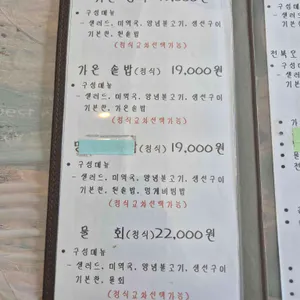 • 구성메뉴
- 샐러드, 미역국, 양념불고기, 생선구이
기본찬, 흰솥밥
(정식교차선택가능)
가온 솥밥(정식) 19,000원
• 구성메뉴
- 샐러드, 미역국, 양념불고기, 생선구이
기본찬, 가온솥밥
(정식교차선택가능)
(정식) 19,000원
• 구성메뉴
- 샐러드, 미역국, 양념불고기, 생선구이
기본찬, 흰솥밥, 멍게비빔밥
(정식교차선택가능)
물 회(정식) 22,000원
• 구성메뉴
- 샐러드, 미역국, 양념불고기, 생선구이
기본찬, 물회
(정식교차선택가능)
전복